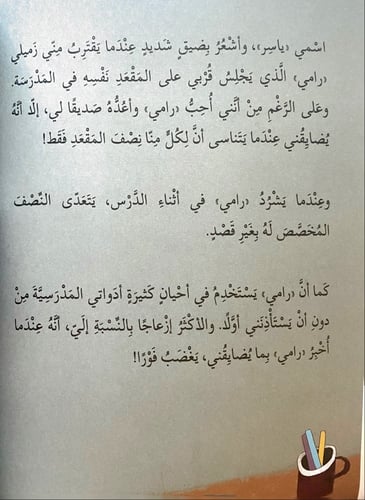 اسْمي «ياسِر»، وأشْعُرُ بِضيقٍ شَديدٍ عِنْدَما يَقْتَرِبُ مِنّي زَميلي
«رامي» الَّذي يَجْلِسُ قُرْبي على المَقْعَدِ نَفْسِهِ في المَدْرَسَة.
وعَلى الرَّغْمِ مِنْ أنَّني أُحِبُّ «رامي» وأعُدُّهُ صَديقًا لي، إلّا أنَّهُ
يُضايِقُني عِنْدَما يَتَناسى أنَّ لِكُلٍّ مِنّا نِصْفَ المَقْعَدِ فَقَط!
وعِنْدَما يَشْرُدُ «رامي» في أثْناءِ الدَّرْس، يَتَعَدّى النِّصْفَ
المُخَصَّصَ لَهُ بِغَيْرِ قَصْدٍ.
كَما أنَّ «رامي» يَسْتَخْدِمُ في أحْيانٍ كَثيرَةٍ أدَواتي المَدْرَسِيَّةَ مِنْ
دونِ أنْ يَسْتَأْذِنَني أوَّلًا. والأكْثَرُ إزْعاجًا بِالنِّسْبَةِ إلَيّ، أنَّهُ عِنْدَما
أُخْبِرُ «رامي» بِما يُضايِقُني، يَغْضَبُ فَوْرًا!